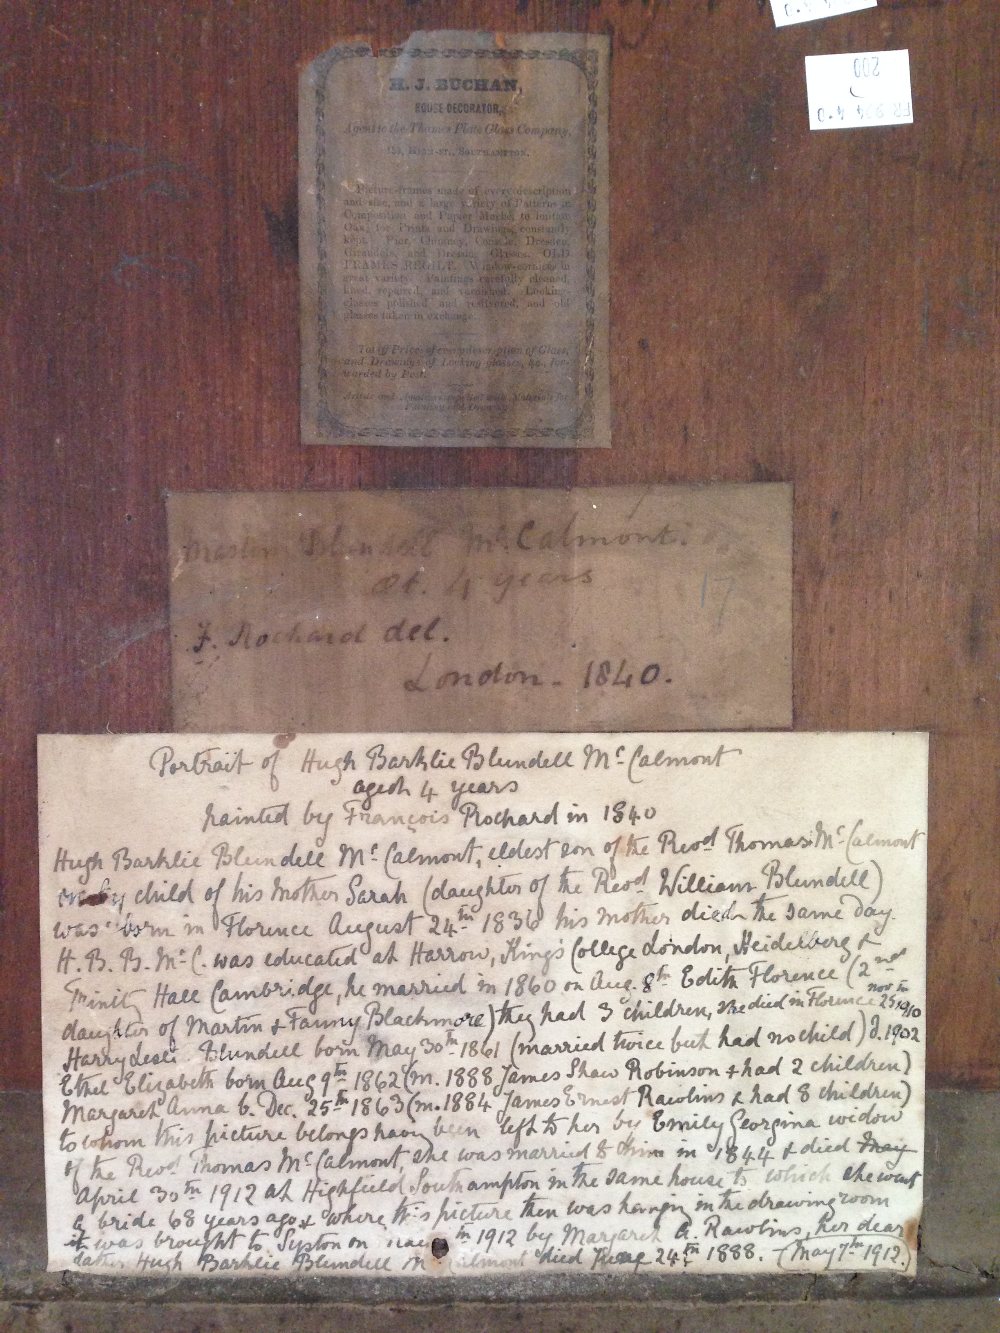 H. J. BUCHAN,
HOUSE DECORATOR,
Agent to the Thames Plate Glass Company,
HIGH-ST., SOUTHAMPTON.
Picture-frames made of every description
and size, and a large variety of Patterns in
Composition and Papier Mache, to imitate
Oak, for Prints and Drawings, constantly
kept. Pier, Chimney, Console, Dresden,
Girandole, and Dressing Glasses. OLD
FRAMES REGILT. Window-cornices in
great variety. Paintings carefully cleaned,
lined, repaired, and varnished. Looking-
glasses polished and resilvered, and old
glasses taken in exchange.
List of Prices of every description of Glass,
and Drawings of Looking glasses, &c. for-
warded by Post.
Artists and Amateurs supplied with Materials for
Painting and Drawing
200
4.0
Master Blundell Mc. Calmont.
at. 4 years
17
F. Rochard del.
London - 1840.
Portrait of Hugh Barklie Blundell Mc Calmont
aged 4 years
painted by François Rochard in 1840
Hugh Barklie Blundell Mc Calmont, eldest son of the Revd Thomas Mc Calmont
only child of his Mother Sarah (daughter of the Revd William Blundell)
was born in Florence August 24th 1836 his mother died the same day.
H. B. B. Mc C. was educated at Harrow, King's College London, Heidelberg &
Trinity Hall Cambridge, he married in 1860 on Aug. 8th Edith Florence (2nd
daughter of Martin & Fanny Blackmore) they had 3 children, she died in Florence Nov 25th 1910
Harry Leslie Blundell born May 30th 1861 (married twice but had no child) d. 1902
Ethel Elizabeth born Aug 9th 1862 (m. 1888 James Shaw Robinson & had 2 children)
Margaret Anna b. Dec. 25th 1863 (m. 1884 James Ernest Rawlins & had 8 children)
to whom this picture belongs having been left to her by Emily Georgina widow
of the Revd Thomas Mc Calmont, she was married to him in 1844 & died May
April 30th 1912 at Highfield Southampton in the same house to which she went
a bride 68 years ago & where this picture then was hangin in the drawing room
it was brought to Syston on 1912 by Margaret A. Rawlins, her dear
father Hugh Barklie Blundell Mc Calmont died 24th 1888. (May 7th 1912.)